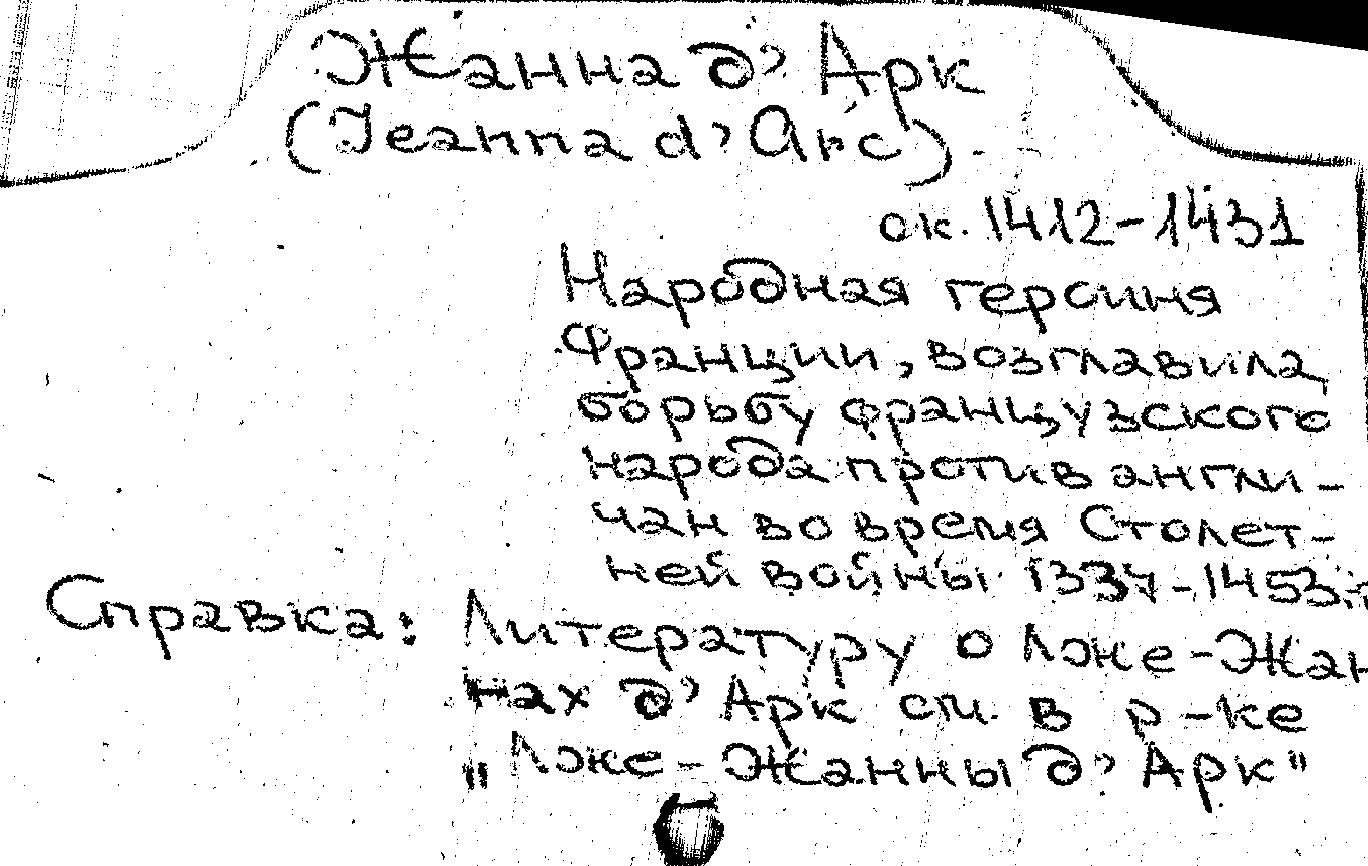 Жанна д'Арк
(Jeanna d'Arc).
ок. 1412-1431
Народная героиня
Франции, возглавила
борьбу французского
народа против англи-
чан во время Столет-
ней войны 1337-1453гг
Справка: Литературу о Лже-Жан
нах д'Арк см. в р-ке
"Лже-Жанны д'Арк"